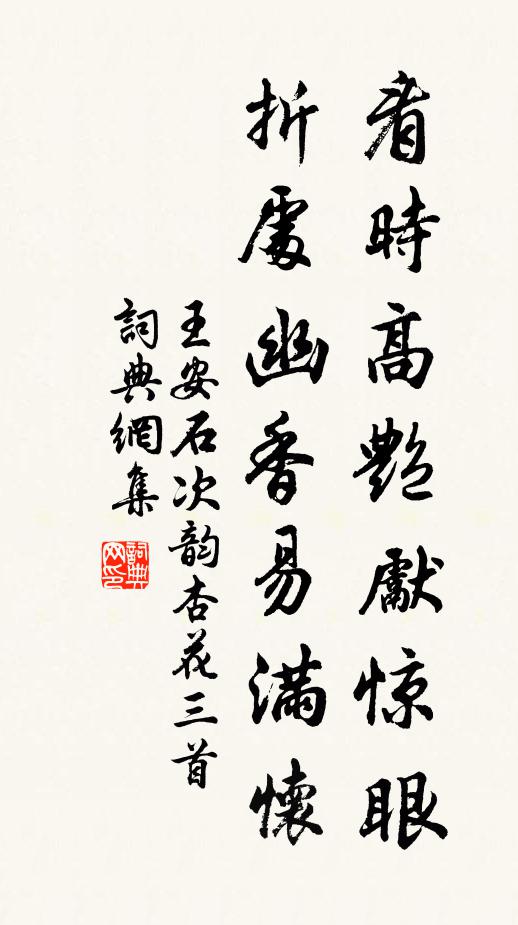 看時高艷獻惊眼
折處幽香易滿懷
王安石次韵杏花三首
詞典網集
詞典
网印